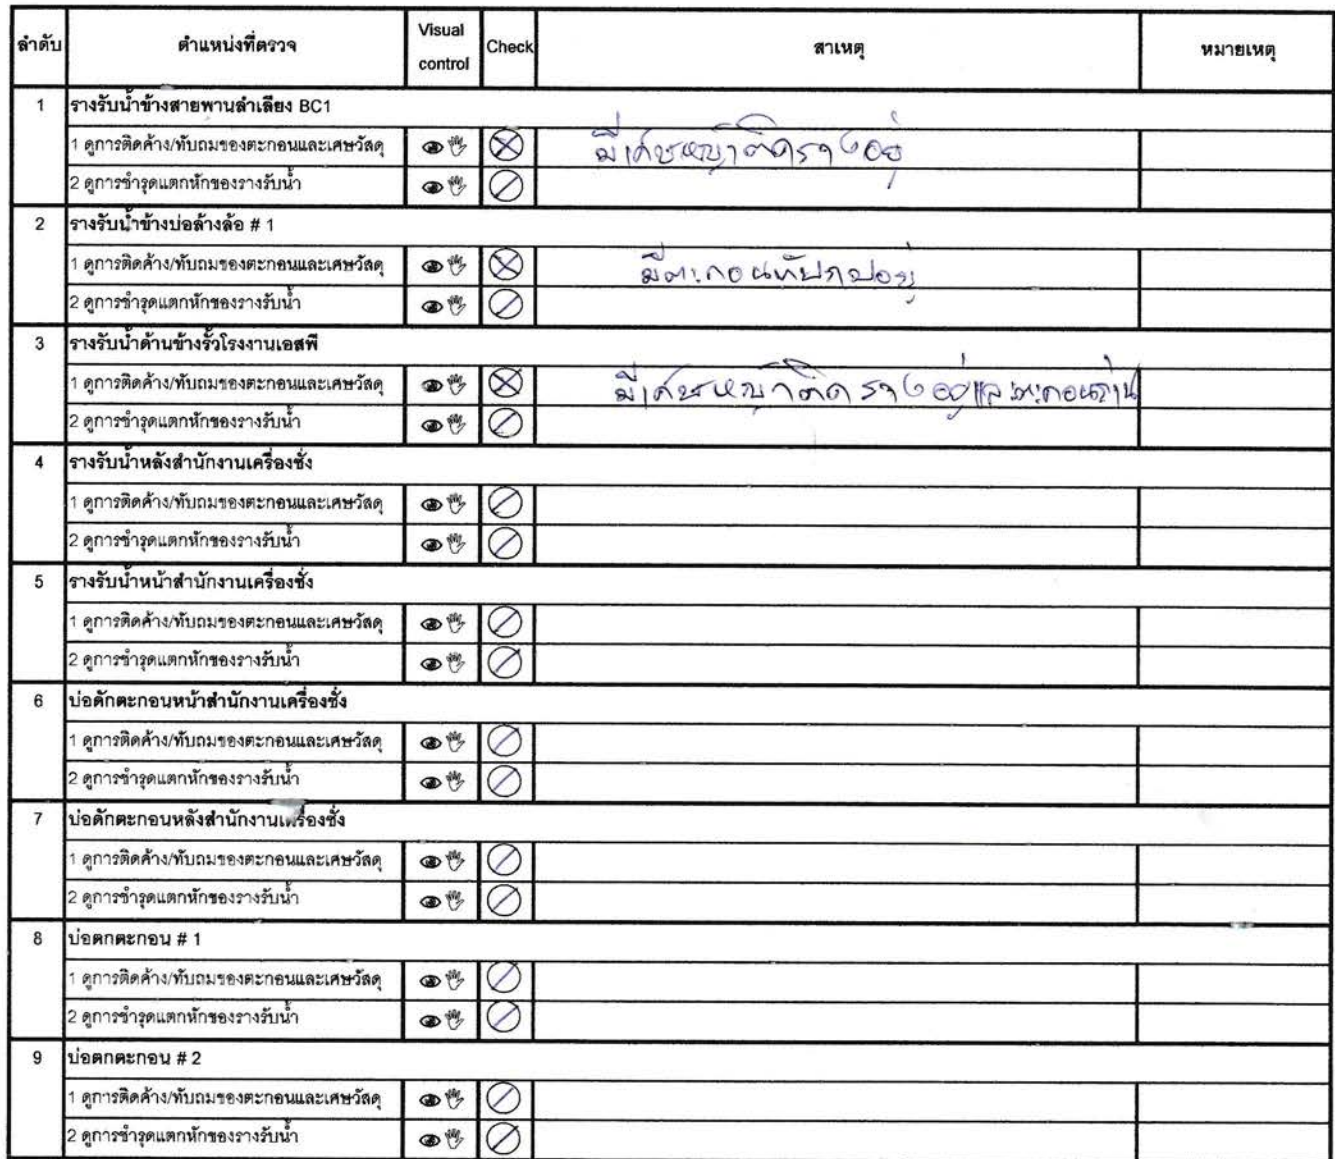 ลำดับ ตำแหน่งที่ตรวจ Visual control Check สาเหตุ หมายเหตุ
1 รางรับน้ำข้างสายพานลำเลียง BC1
1 ดูการติดค้าง/ทับถมของตะกอนและเศษวัสดุ มีเศษหญ้าติดรางอยู่
2 ดูการชำรุดแตกหักของรางรับน้ำ
2 รางรับน้ำข้างบ่อล้างล้อ # 1
1 ดูการติดค้าง/ทับถมของตะกอนและเศษวัสดุ มีตะกอนทับถมอยู่
2 ดูการชำรุดแตกหักของรางรับน้ำ
3 รางรับน้ำด้านข้างรั้วโรงงานเอสพี
1 ดูการติดค้าง/ทับถมของตะกอนและเศษวัสดุ มีเศษหญ้าติดรางอยู่และตะกอนถ่าน
2 ดูการชำรุดแตกหักของรางรับน้ำ
4 รางรับน้ำหลังสำนักงานเครื่องชั่ง
1 ดูการติดค้าง/ทับถมของตะกอนและเศษวัสดุ
2 ดูการชำรุดแตกหักของรางรับน้ำ
5 รางรับน้ำหน้าสำนักงานเครื่องชั่ง
1 ดูการติดค้าง/ทับถมของตะกอนและเศษวัสดุ
2 ดูการชำรุดแตกหักของรางรับน้ำ
6 บ่อดักตะกอนหน้าสำนักงานเครื่องชั่ง
1 ดูการติดค้าง/ทับถมของตะกอนและเศษวัสดุ
2 ดูการชำรุดแตกหักของรางรับน้ำ
7 บ่อดักตะกอนหลังสำนักงานเครื่องชั่ง
1 ดูการติดค้าง/ทับถมของตะกอนและเศษวัสดุ
2 ดูการชำรุดแตกหักของรางรับน้ำ
8 บ่อตกตะกอน # 1
1 ดูการติดค้าง/ทับถมของตะกอนและเศษวัสดุ
2 ดูการชำรุดแตกหักของรางรับน้ำ
9 บ่อตกตะกอน # 2
1 ดูการติดค้าง/ทับถมของตะกอนและเศษวัสดุ
2 ดูการชำรุดแตกหักของรางรับน้ำ